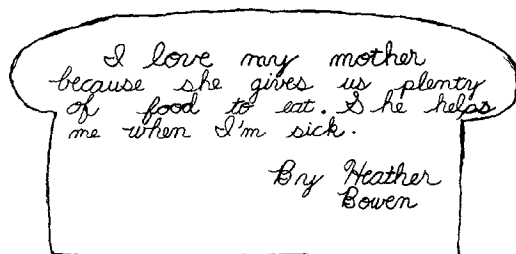 I love my mother
because she gives us plenty
of food to eat. She helps
me when I'm sick.
By Heather
Bowen